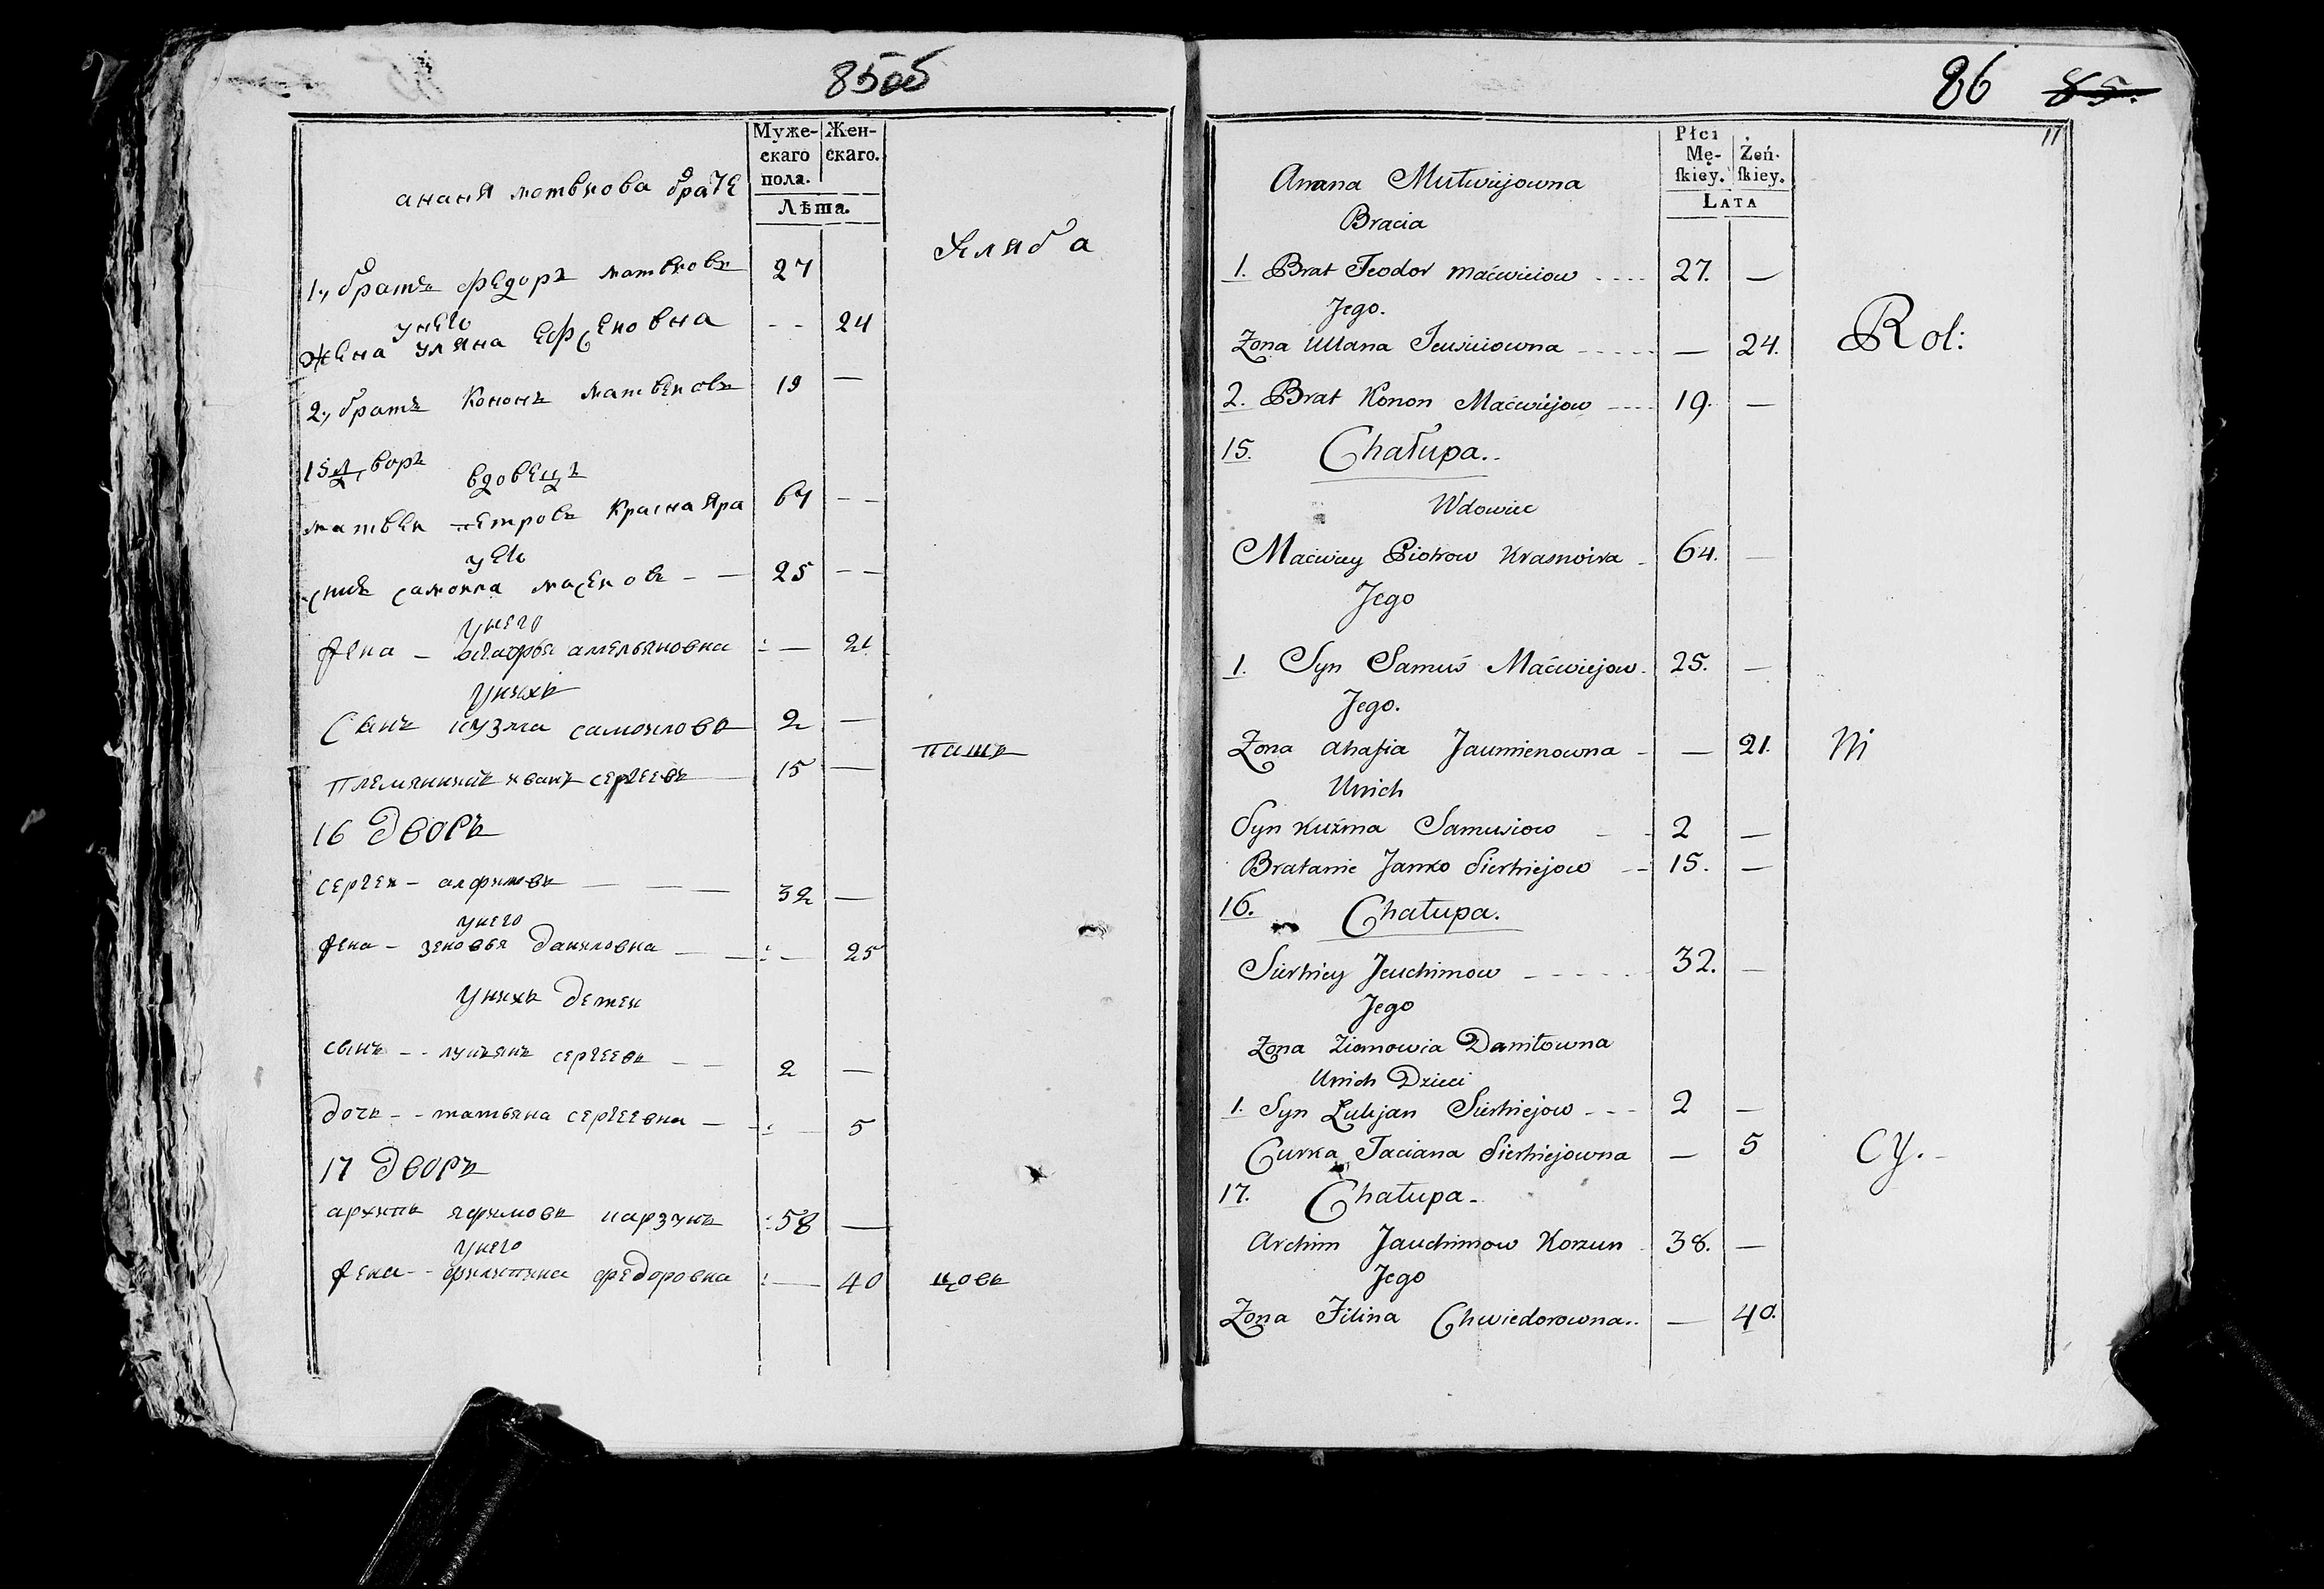 85об
Муже-
скаго
пола.
Жен-
скаго.
Лѣта.
анания матвѣева братѣ
1., братъ федоръ матвѣевъ 27
хлѣба
у него
жена уляна — — 24
2., братъ Кононъ матвѣевъ 19 —
15й дворъ
вдовецъ
матвѣй петровъ Красна Яра 64 — —
у его
сынъ самойла — — 25 — —
у него
жена — агафья амельяновна — 21
у нихъ
сынъ кузма самойловъ 2 —
племянникъ иванъ сергеевъ 15 —
пашъ
16 дворъ
сергей — алфимовъ — — — 32 —
у него
жена — зеновья даниловна — — — 25
у нихъ детей
сынъ — лукьянъ сергеевъ — — 2 —
дочь — татьяна сергеевна — — 5
17 дворъ
архипъ яфимовъ карзунъ 58 —
у него
жена — филипина федоровна — 40
цовъ
86 85.
17
Płci
Mę-
ſkiey.
Żeń-
ſkiey.
LATA
Anana Mutwiejowna
Bracia
1. Brat Teodor Maćwieiow 27. —
Jego.
Zona Ullana — 24.
Rol:
2. Brat Konon Maćwiejow 19. —
15. Chałupa.
Wdowiec
Maćwiey Piotrow Krasnoira 64. —
Jego
1. Syn Samuś Maćwiejow 25. —
Jego.
Zona Ahafia Jaumienowna — 21.
Ni
Unich
Syn Kuźma Samusiow 2 —
Bratanie Janko Sierhiejow 15. —
16. Chałupa.
Sierhiey Jeuchimow 32. —
Jego
Zona Zienowia Daniłowna
Unich Dzieci
1. Syn Łukjan Sierhiejow 2 —
Curka Taciana Sierhiejowna — 5
CY.
17. Chałupa.
Archim Jauchimow Korzun 38. —
Jego
Zona Filina Chwiedorowna — 40.